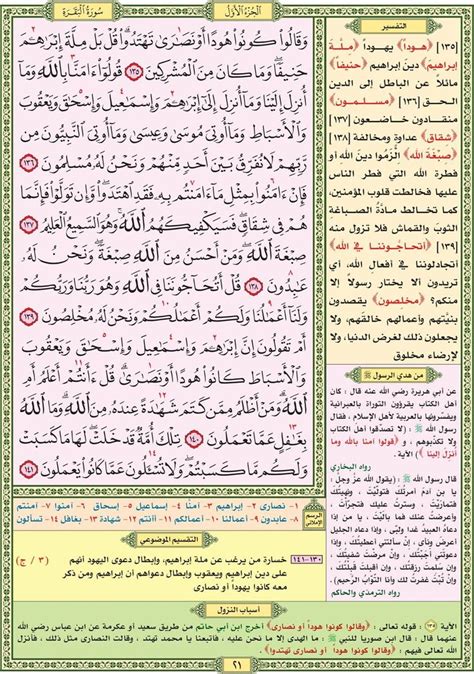 سُورَةُ الْبَقَرَةِ
الْجُزْءُ الْأَوَّلُ
التفسير
وَقَالُواْ كُونُواْ هُودًا أَوْ نَصَٰرَىٰ تَهْتَدُواْ ۗ قُلْ بَلْ مِلَّةَ إِبْرَٰهِـۧمَ
حَنِيفًا ۖ وَمَا كَانَ مِنَ ٱلْمُشْرِكِينَ ١٣٥ قُولُوٓاْ ءَامَنَّا بِٱللَّهِ وَمَآ
أُنزِلَ إِلَيْنَا وَمَآ أُنزِلَ إِلَىٰٓ إِبْرَٰهِـۧمَ وَإِسْمَٰعِيلَ وَإِسْحَٰقَ وَيَعْقُوبَ
وَٱلْأَسْبَاطِ وَمَآ أُوتِىَ مُوسَىٰ وَعِيسَىٰ وَمَآ أُوتِىَ ٱلنَّبِيُّونَ مِن
رَّبِّهِمْ لَا نُفَرِّقُ بَيْنَ أَحَدٍ مِّنْهُمْ وَنَحْنُ لَهُۥ مُسْلِمُونَ ١٣٦
فَإِنْ ءَامَنُواْ بِمِثْلِ مَآ ءَامَنتُم بِهِۦ فَقَدِ ٱهْتَدَواْ ۖ وَّإِن تَوَلَّوْاْ فَإِنَّمَا
هُمْ فِى شِقَاقٍ ۖ فَسَيَكْفِيكَهُمُ ٱللَّهُ ۚ وَهُوَ ٱلسَّمِيعُ ٱلْعَلِيمُ ١٣٧
صِبْغَةَ ٱللَّهِ ۖ وَمَنْ أَحْسَنُ مِنَ ٱللَّهِ صِبْغَةً ۖ وَنَحْنُ لَهُۥ
عَٰبِدُونَ ١٣٨ قُلْ أَتُحَآجُّونَنَا فِى ٱللَّهِ وَهُوَ رَبُّنَا وَرَبُّكُمْ
وَلَنَآ أَعْمَٰلُنَا وَلَكُمْ أَعْمَٰلُكُمْ وَنَحْنُ لَهُۥ مُخْلِصُونَ ١٣٩
أَمْ تَقُولُونَ إِنَّ إِبْرَٰهِـۧمَ وَإِسْمَٰعِيلَ وَإِسْحَٰقَ وَيَعْقُوبَ
وَٱلْأَسْبَاطَ كَانُواْ هُودًا أَوْ نَصَٰرَىٰ ۗ قُلْ ءَأَنتُمْ أَعْلَمُ أَمِ
ٱللَّهُ ۗ وَمَنْ أَظْلَمُ مِمَّن كَتَمَ شَهَٰدَةً عِندَهُۥ مِنَ ٱللَّهِ ۗ وَمَا ٱللَّهُ
بِغَٰفِلٍ عَمَّا تَعْمَلُونَ ١٤٠ تِلْكَ أُمَّةٌ قَدْ خَلَتْ ۖ لَهَا مَا كَسَبَتْ
وَلَكُم مَّا كَسَبْتُمْ ۖ وَلَا تُسْـَٔلُونَ عَمَّا كَانُواْ يَعْمَلُونَ ١٤١
[١٣٥] ﴿هوداً﴾ يهوداً ﴿ملة
إبراهيم﴾ دين إبراهيم ﴿حنيفاً﴾
مائلاً عن الباطل إلى الدين
الحق [١٣٦] ﴿مسلمون﴾
منقادون خاضعون [١٣٧]
﴿شقاق﴾ عداوة ومخالفة [١٣٨]
﴿صبغة الله﴾ الزموا دين الله أو
فطرة الله التي فطر الناس
عليها فخالطت قلوب المؤمنين،
كما تخالط مادة الصباغة
الثوب والقماش فلا تزول منه
[١٣٩] ﴿أتحاجوننا في الله﴾
أتجادلوننا في أفعال الله، أي
تريدون ألا يختار رسولاً إلا
منكم؟ ﴿مخلصون﴾ يقصدون
بنيتهم وأعمالهم خالقهم، ولا
يجعلون ذلك لغرض الدنيا، ولا
لإرضاء مخلوق
من هدي الرسول ﷺ
عن أبي هريرة رضي الله عنه قال: كان
أهل الكتاب يقرؤون التوراة بالعبرانية
ويفسرونها بالعربية لأهل الإسلام، فقال
رسول الله ﷺ: (لا تصدقوا أهل الكتاب
ولا تكذبوهم، و ﴿قولوا آمنا بالله وما
أنزل إلينا﴾)
رواه البخاري
رواه الترمذي والحاكم
الرسم الإملائي
١- نصارى ٢- إبراهيم ٣- آمنا ٤- إسماعيل ٥- إسحاق ٦- أوتي ٧- آمنوا آمنتم
٨- عابدون ٩- أعمالنا ١٠- أعمالكم ١١- أأنتم ١٢- شهادة ١٣- بغافل ١٤- تسألون
التقسيم الموضوعي
١٣٠-١٤١
خسارة من يرغب عن ملة إبراهيم، وإبطال دعوى اليهود أنهم
على دين إبراهيم ويعقوب وإبطال دعواهم أن إبراهيم ومن ذكر
معه كانوا هوداً أو نصارى
(٣ / ج)
أسباب النزول
الآية ١٣٥ قوله تعالى: ﴿وقالوا كونوا هوداً أو نصارى﴾ أخرج ابن أبي حاتم من طريق سعيد أو عكرمة عن ابن عباس رضي الله
عنهما قال: قال ابن صوريا للنبي ﷺ: ما الهدى إلا ما نحن عليه، فاتبعنا يا محمد تهتد، وقالت النصارى مثل ذلك، فأنزل
الله تعالى فيهم ﴿وقالوا كونوا هوداً أو نصارى تهتدوا﴾.
٢١